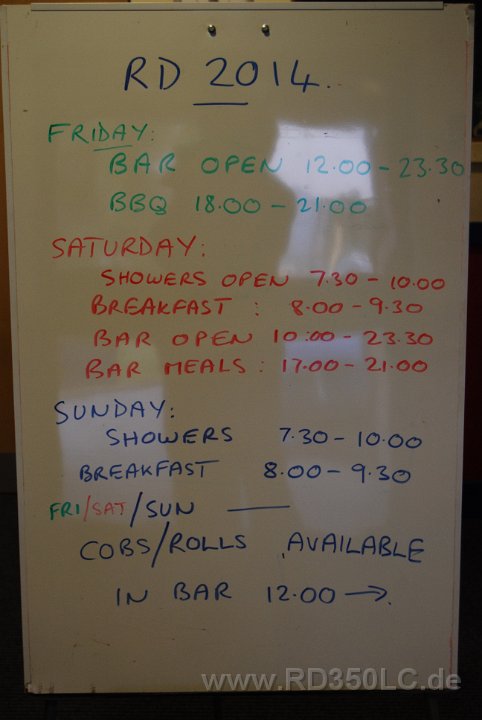 RD 2014.
FRIDAY:
BAR OPEN 12.00 - 23.30
BBQ 18.00 - 21.00
SATURDAY:
SHOWERS OPEN 7.30 - 10.00
BREAKFAST : 8.00 - 9.30
BAR OPEN 10:00 - 23.30
BAR MEALS : 17.00 - 21.00
SUNDAY:
SHOWERS 7.30 - 10.00
BREAKFAST 8.00 - 9.30
FRI/SAT/SUN —
COBS/ROLLS AVAILABLE
IN BAR 12.00 →.
www.RD350LC.de